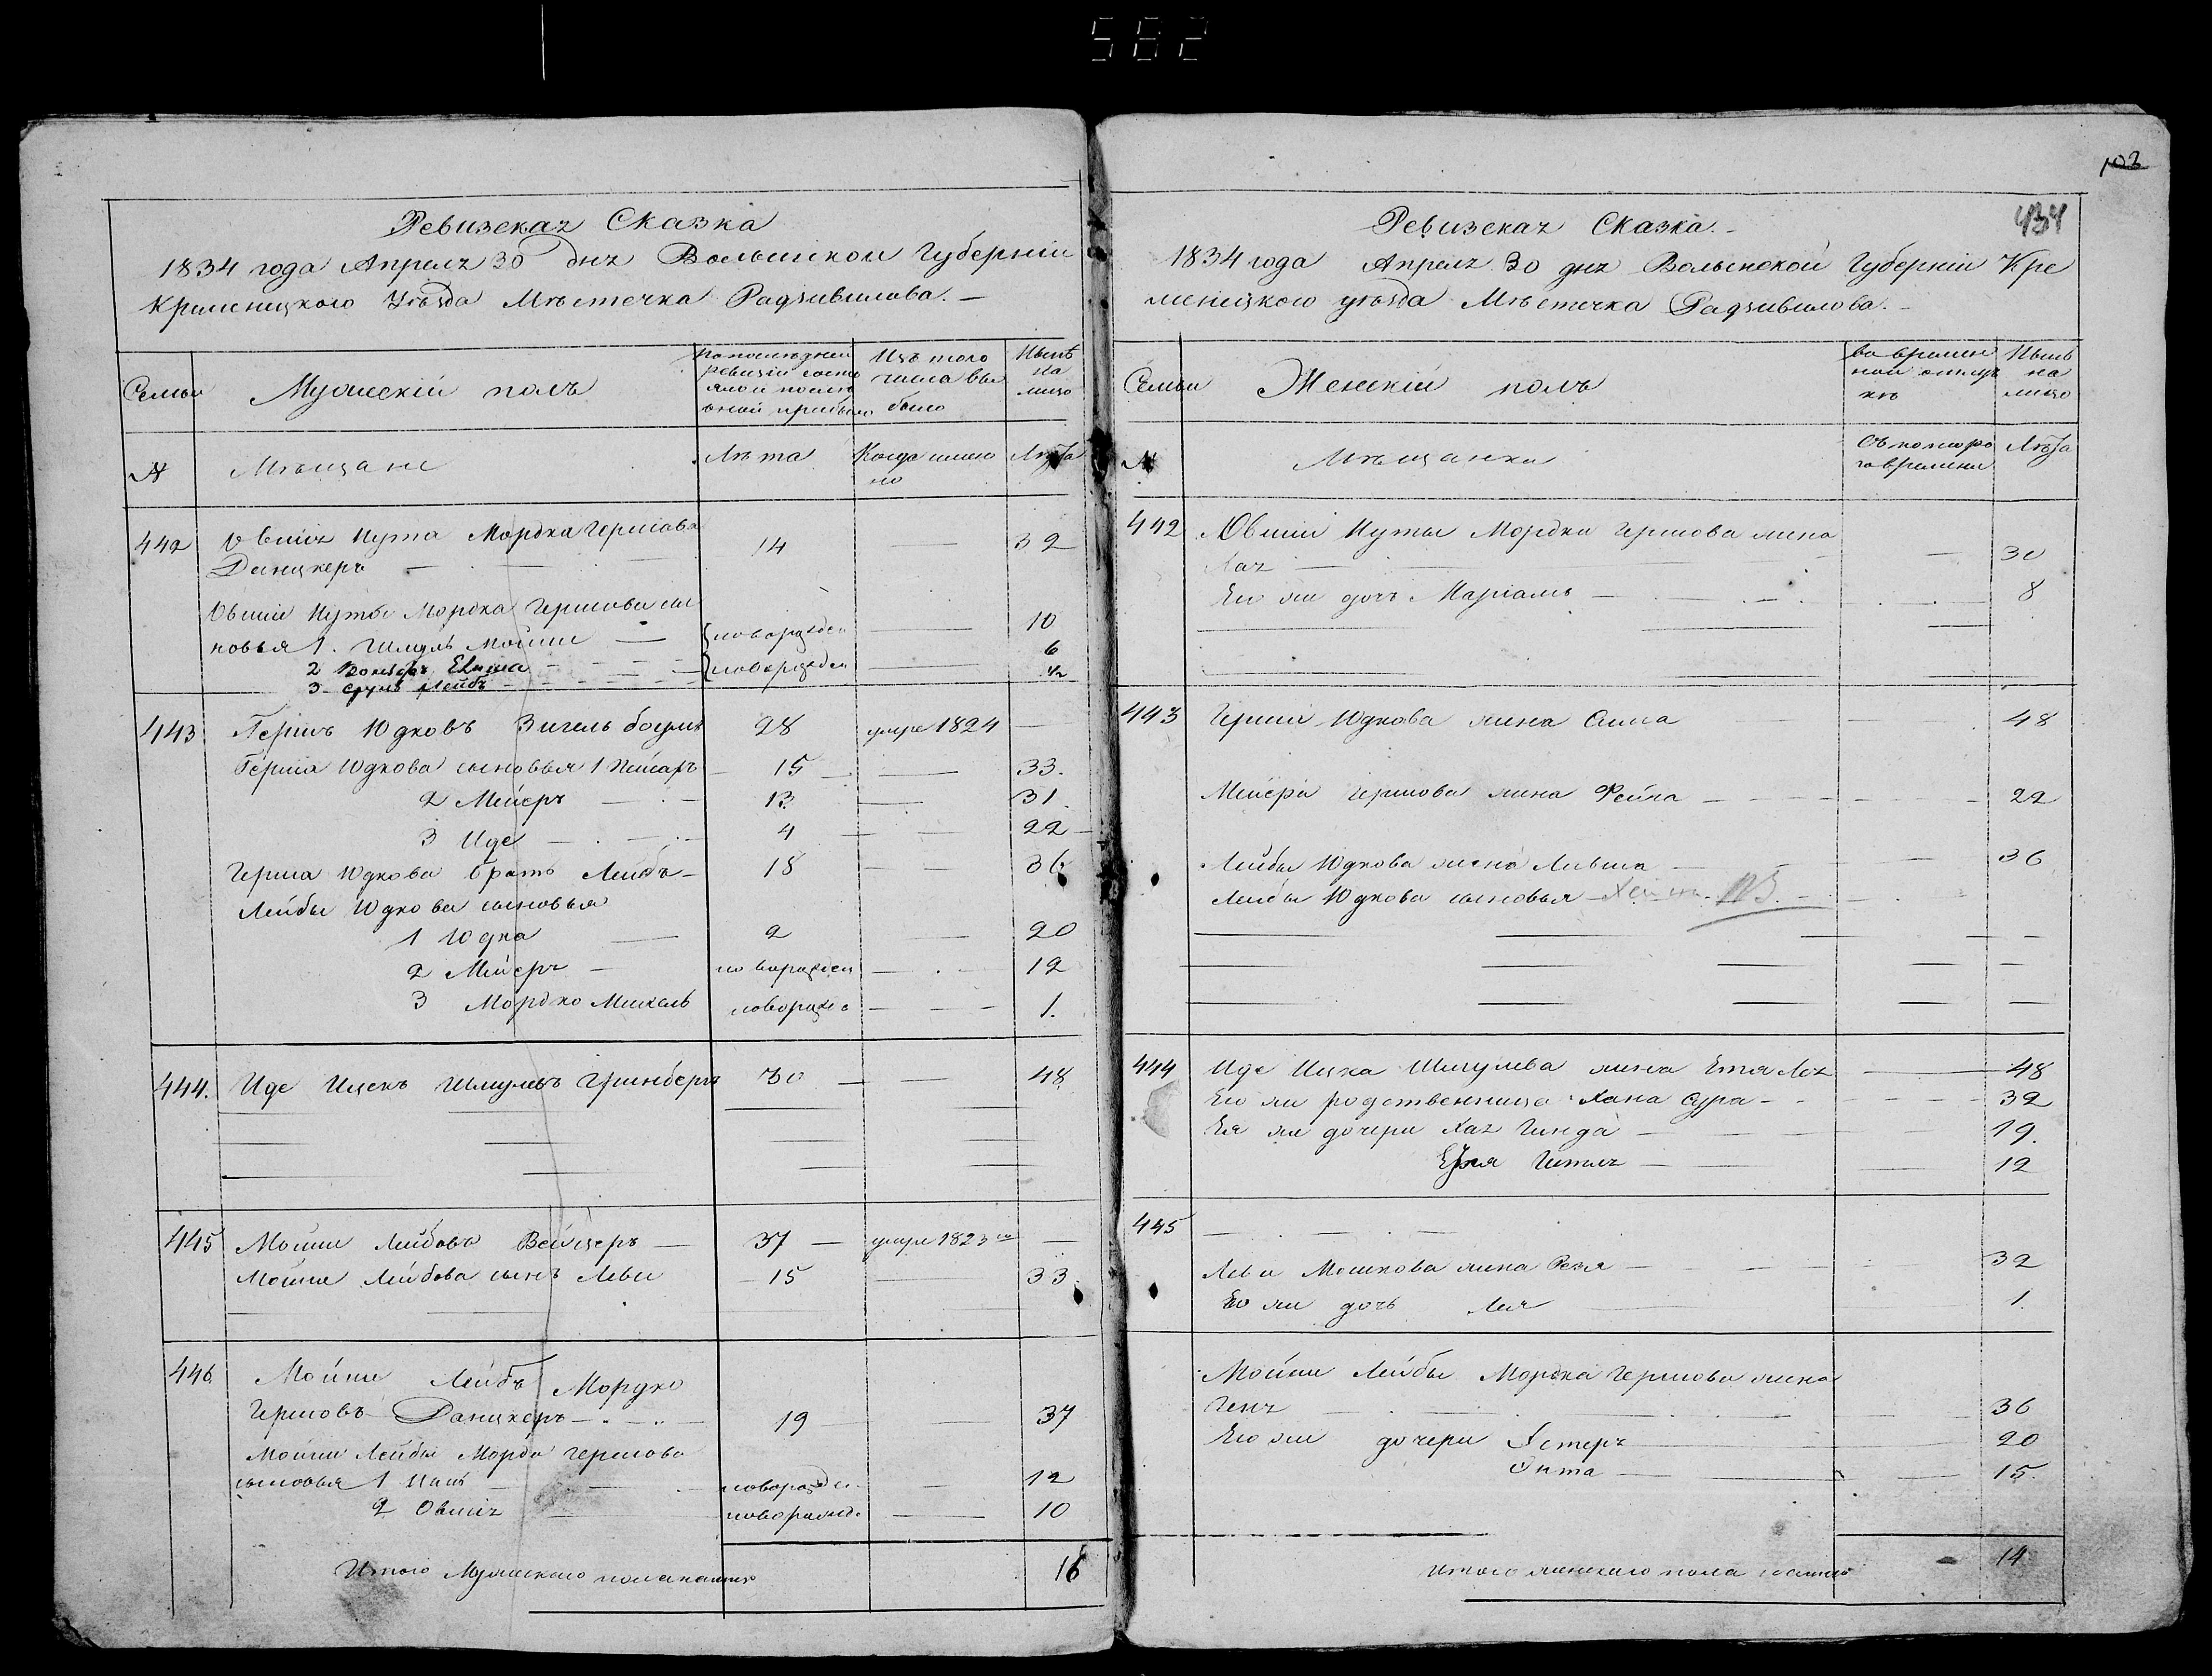 582
Ревизская Сказка
1834 года Апреля 30 дня Волынской Губерніи
Кременецкого Уѣзда Мѣстечка Радзивилова. —
Семьи
Мужескій полъ
По последней ревизіи состояло и после оной прибыло
Изъ того числа выбыло
Нынѣ на лицо
№
Мѣщане
Лѣта
Когда имянно
Лѣта
442 Овшія Нута Мордка Гершовъ 14 — 32
Данцкеръ
Овшіи Нуты Мордка Гершова сы
новья 1. Шмуль Мойше — новорожден — 10
2 — 6
3 Срулъ Лейбъ новорожден — 1/2
443 Гершъ Юдковъ 28 умре 1824 —
Герша Юдкова сыновья 1 15 — 33.
2 Мейеръ 13 — 31.
3 Иде 4 — 22
Герша Юдкова братъ Лейбъ 18 — 36
Лейбы Юдкова сыновья
1 Юдка 2 — 20
2 Мейеръ новорожден — 12
3 Мордко Михель новорожде — 1.
444. Иде Ицекъ Шмулевъ Гринбергъ 30 — 48
445 Мошко Лейбовъ Вейцеръ 37 — умре 1823 го —
Мойше Лейбова сынъ Леви 15 — 33.
446 Мойше Лейбъ Мордко
Гершовъ Данцкеръ 19 37
Мойше Лейбы Мордк Гершова
сыновья 1 новорожден — 12
2 Овшія новорожде — 10
Итого Мужескаго пола налицо 16
102
434
Ревизская Сказка. —
1834 года Апреля 30 дня Волынской Губерніи Кре
менецкого уѣзда Мѣстечка Радзивилова. —
Семьи
Женскій полъ
во временной отлучкѣ
Нынѣ на лицо
№
Мѣщанки
Съ которого времени
Лѣта
442 Овшіи Нуты Мордки Гершова жена
Хая — 30
Его же дочь Маріамъ — 8
443 Герша Юдкова жена — 48
Мейера Гершова жена Фейга — 22
Лейбы Юдкова жена — 36
Лейбы Юдкова сыновья
444 Иде Ицка Шмулева жена Етя Лея — 48
Его же родственница Хана Сура — 32
Ея же дочери Хая Гинда — 19.
Гитля — 12
445
Леви Мошкова жена Рейзя — 32
Его же дочь Лея — 1.
Мойше Лейбы Мордка Гершова жена
Геня — 36
Его же дочери Естеръ — 20
Ента — 15.
Итого женскаго пола налицо — 14